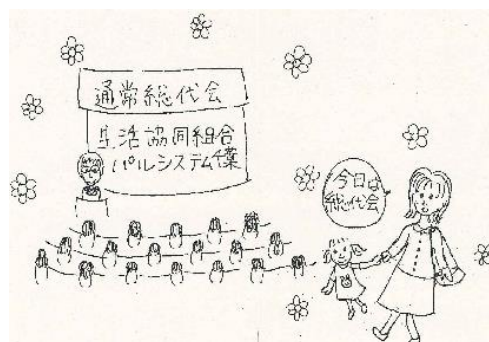 通常総代会
生活協同組合
パルシステム千葉
今日は
総代会